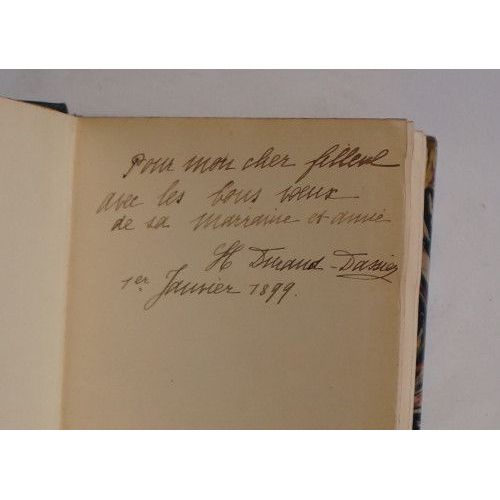 Pour mon cher filleul
avec les bons vœux
de sa marraine et amie
H Durand-Dassier
1er Janvier 1899.